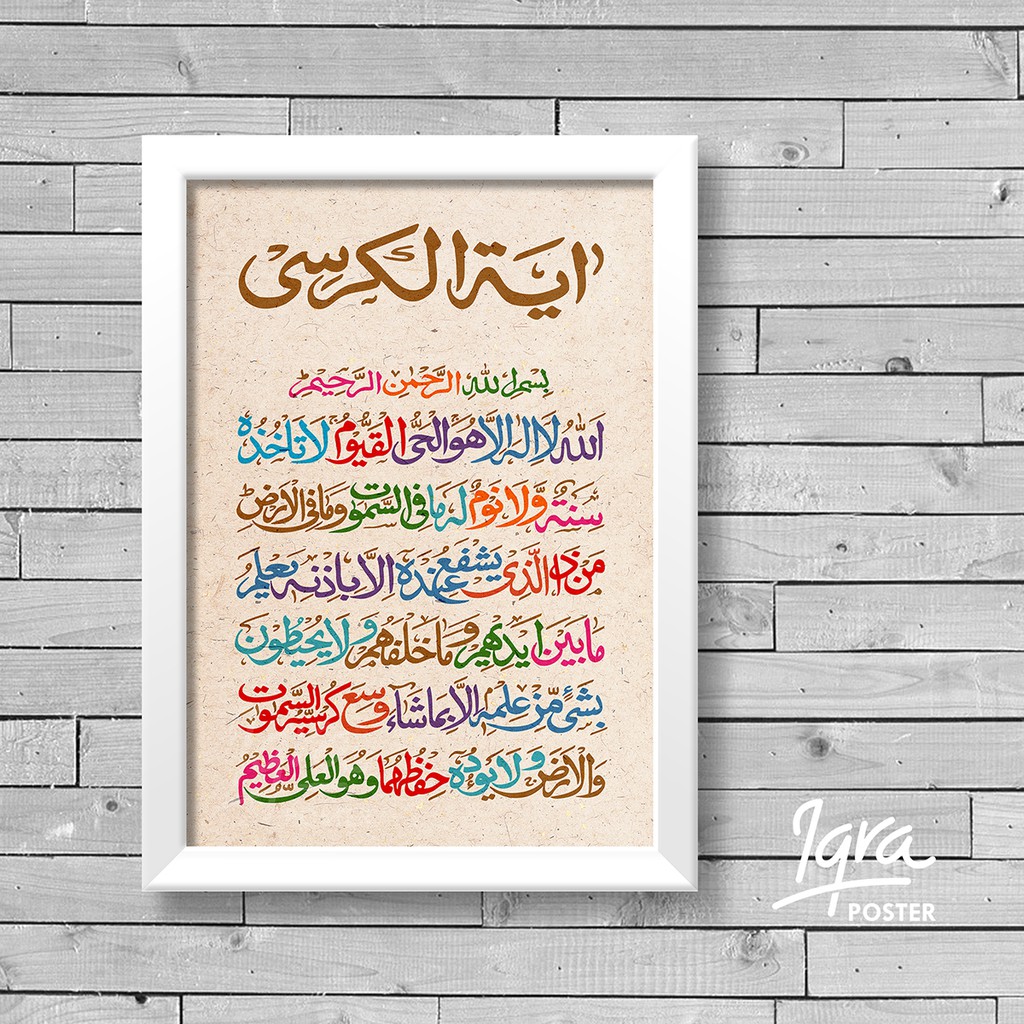 اٰية الكرسى
بِسْمِ اللهِ الرَّحْمٰنِ الرَّحِيْمِ
اَللهُ لَا اِلٰهَ اِلَّا هُوَ الْحَىُّ الْقَيُّوْمُ لَا تَاْخُذُهٗ
سِنَةٌ وَّلَا نَوْمٌ لَهٗ مَا فِى السَّمٰوٰتِ وَمَا فِى الْاَرْضِ
مَنْ ذَا الَّذِىْ يَشْفَعُ عِنْدَهٗٓ اِلَّا بِاِذْنِهٖ يَعْلَمُ
مَا بَيْنَ اَيْدِيْهِمْ وَمَا خَلْفَهُمْ وَلَا يُحِيْطُوْنَ
بِشَىْءٍ مِّنْ عِلْمِهٖٓ اِلَّا بِمَا شَآءَ وَسِعَ كُرْسِيُّهُ السَّمٰوٰتِ
وَالْاَرْضَ وَلَا يَـُٔوْدُهٗ حِفْظُهُمَا وَهُوَ الْعَلِىُّ الْعَظِيْمُ
Iqra
POSTER